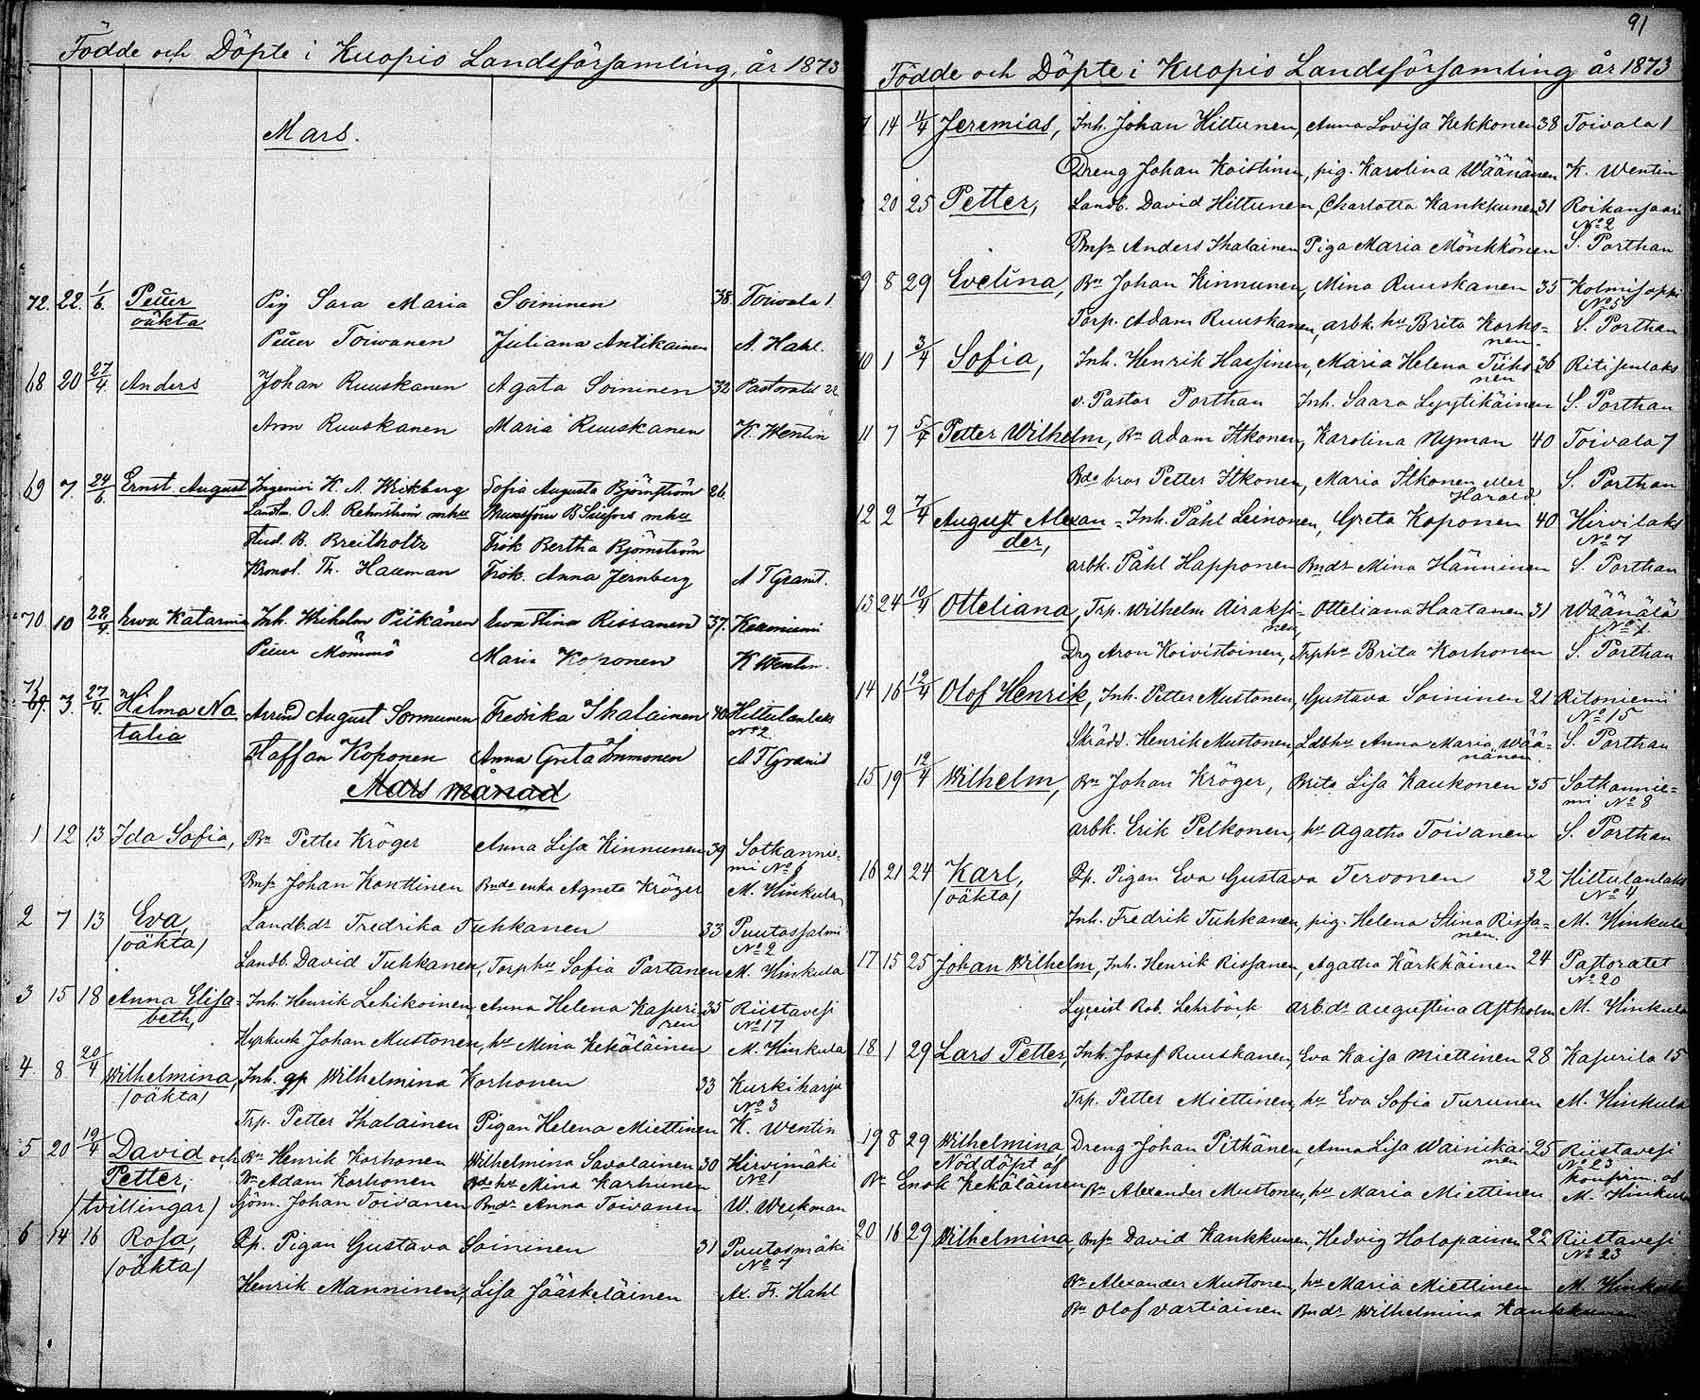 Födde och Döpte i Kuopio Landsförsamling, år 1873
Mars.
72. 22. 1/6. Petter Pig Sara Maria Soininen 38. Toivala 1
oäkta
Petter Toivanen Juliana Antikainen A. Hahl.
68 20 27/4. Anders Johan Ruuskanen Agata Soininen 32 Pastoratet 22
Aron Ruuskanen Maria Ruuskanen K. Wentin
69 7. 24/6. Ernst August Ingeniör K. A. Wickberg Sofia Augusta Björnström 26.
O. A. Rehnström m hu
Stud. B. Breitholtz Frök Bertha Björnström
Kronol. Th. Hallman Frök. Anna Jernberg A T Granit.
70 10 28/4 Ewa Katarina Inh. Wilhelm Pitkänen Ewa Stina Rissanen 37. Keuniemi
Petter Mömmö Maria Koponen K Wentin.
71 69. 3. 27/4. Hilma Na Arrend August Sormunen Fredrika Ihalainen 40 Hiltulanlaks
talia No 2
Staffan Koponen Anna Greta Immonen A T Granit
Mars månad
1 12 13 Ida Sofia, Bn Petter Kröger Anna Lisa Kinnunen 39 Sotkannie=
mi No 8
Bmsn Johan Konttinen Bnde enka Agneta Kröger M. Hinkula
2 7 13 Eva, Landb.dr Fredrika Tuhkanen 33 Puutossalmi
(oäkta) No 2
Landb. David Tuhkanen, Torp hu Sofia Partanen M. Hinkula
3 15 18 Anna Elisa= Inh. Henrik Lehikoinen, Anna Helena Kaperi 35 Riistavesi
beth, nen No 17
Hyrkusk Johan Mustonen, hu Mina Kekäläinen M. Hinkula
4 8 20/4 Wilhelmina, Inh. qp Wilhelmina Korhonen 33 Kurkiharju
(oäkta) No 3
Trp. Petter Ihalainen Pigan Helena Miettinen K. Wentin
5 20 19/4 David och Bn Henrik Korhonen Wilhelmina Savolainen 30 Hirvimäki
Petter, Bn Adam Korhonen Bde hu Mina Karhunen No 1
(tvillingar) Sjöm. Johan Toivanen Bmdr Anna Toivanen W. Weckman
6 14 16 Rosa, Qp. Pigan Gustava Soininen 31 Puutosmäki
(oäkta) No 7
Henrik Manninen, Lisa Jääskeläinen Ax. Fr. Hahl
91
Födde och Döpte i Kuopio Landsförsamling år 1873
7 14 11/4 Jeremias, Inh. Johan Hiltunen, Anna Lovisa Kekkonen 38 Toivala 1
Dreng Johan Koistinen, pig. Karolina Wäänänen K. Wentin
20 25 Petter, Landb. David Hiltunen, Charlotta Kankkunen 31 Roikansaari
No 2
Bmsn Anders Ihalainen Piga Maria Mönkkönen S. Porthan
9 8 29 Evelina, Bn Johan Kinnunen, Mina Ruuskanen 35 Kolmisoppi
No 5
Torp. Adam Ruuskanen, arbk. hu Brita Korho= S. Porthan
nen.
10 1 3/4 Sofia, Inh. Henrik Hassinen, Maria Helena Tiiho= 36 Ritisenlaks
nen
v. Pastor Porthan Inh. Saara Lyytikäinen S. Porthan
11 7 5/4 Petter Wilhelm, Bn Adam Itkonen, Karolina Nyman 40 Toivala 7
Bde bror Petter Itkonen, Maria Itkonen eller S. Porthan
Harald
12 2 7/4 August Alexan= Inh. Påhl Leinonen, Greta Koponen 40 Hirvilaks
der, No 7
arbk. Påhl Happonen Bmdr Mina Hänninen S. Porthan
13 24 10/4 Otteliana, Trp. Wilhelm Airaksi= Otteliana Haatanen 31 Wäänälä
nen, No 1.
Drg Aron Koivistoinen, Trp hu Brita Korhonen S. Porthan
14 16 12/4 Olof Henrik, Inh. Petter Mustonen, Gustava Soininen 21 Ritoniemi
No 15
Skrädd. Henrik Mustonen, Ldb hu Anna Maria Wää= S. Porthan
nänen
15 19 12/4 Wilhelm, Bn Johan Kröger, Brita Lisa Kaukonen 35 Sotkannie=
mi No 8
arbk. Erik Pelkonen, hu Agatha Toivanen S. Porthan
16 21 24 Karl, Qp. Pigan Eva Gustava Tervonen 32 Hiltulanlaks
(oäkta) No 4
Inh. Fredrik Tuhkanen, pig. Helena Stina Rissa= M. Hinkula
nen.
17 15 25 Johan Wilhelm, Inh. Henrik Rissanen, Agatha Kärkkäinen 24 Pastoratet
No 20
Lyceist Rob. Lehrbäck arb.dr Augustina Astholm M. Hinkula
18 1 29 Lars Petter, Inh. Josef Ruuskanen, Eva Kaisa Miettinen 28 Kasurila 15
Trp. Petter Miettinen, hu Eva Sofia Turunen M. Hinkula
19 8 29 Wilhelmina Dreng Johan Pitkänen, Anna Lisa Wainikai 25 Riistavesi
Nöddöpt af nen No 23
Bn Enok Kekäläinen konfirm. af
Bn Alexander Mustonen, hu Maria Miettinen M. Hinkula
20 16 29 Wilhelmina, Bmsn David Kankkunen, Hedvig Holopainen 22 Riistavesi
No 23
Bn Alexander Mustonen, hu Maria Miettinen M. Hinkula
Bn Olof Vartiainen Bmdr Wilhelmina Kankkunen